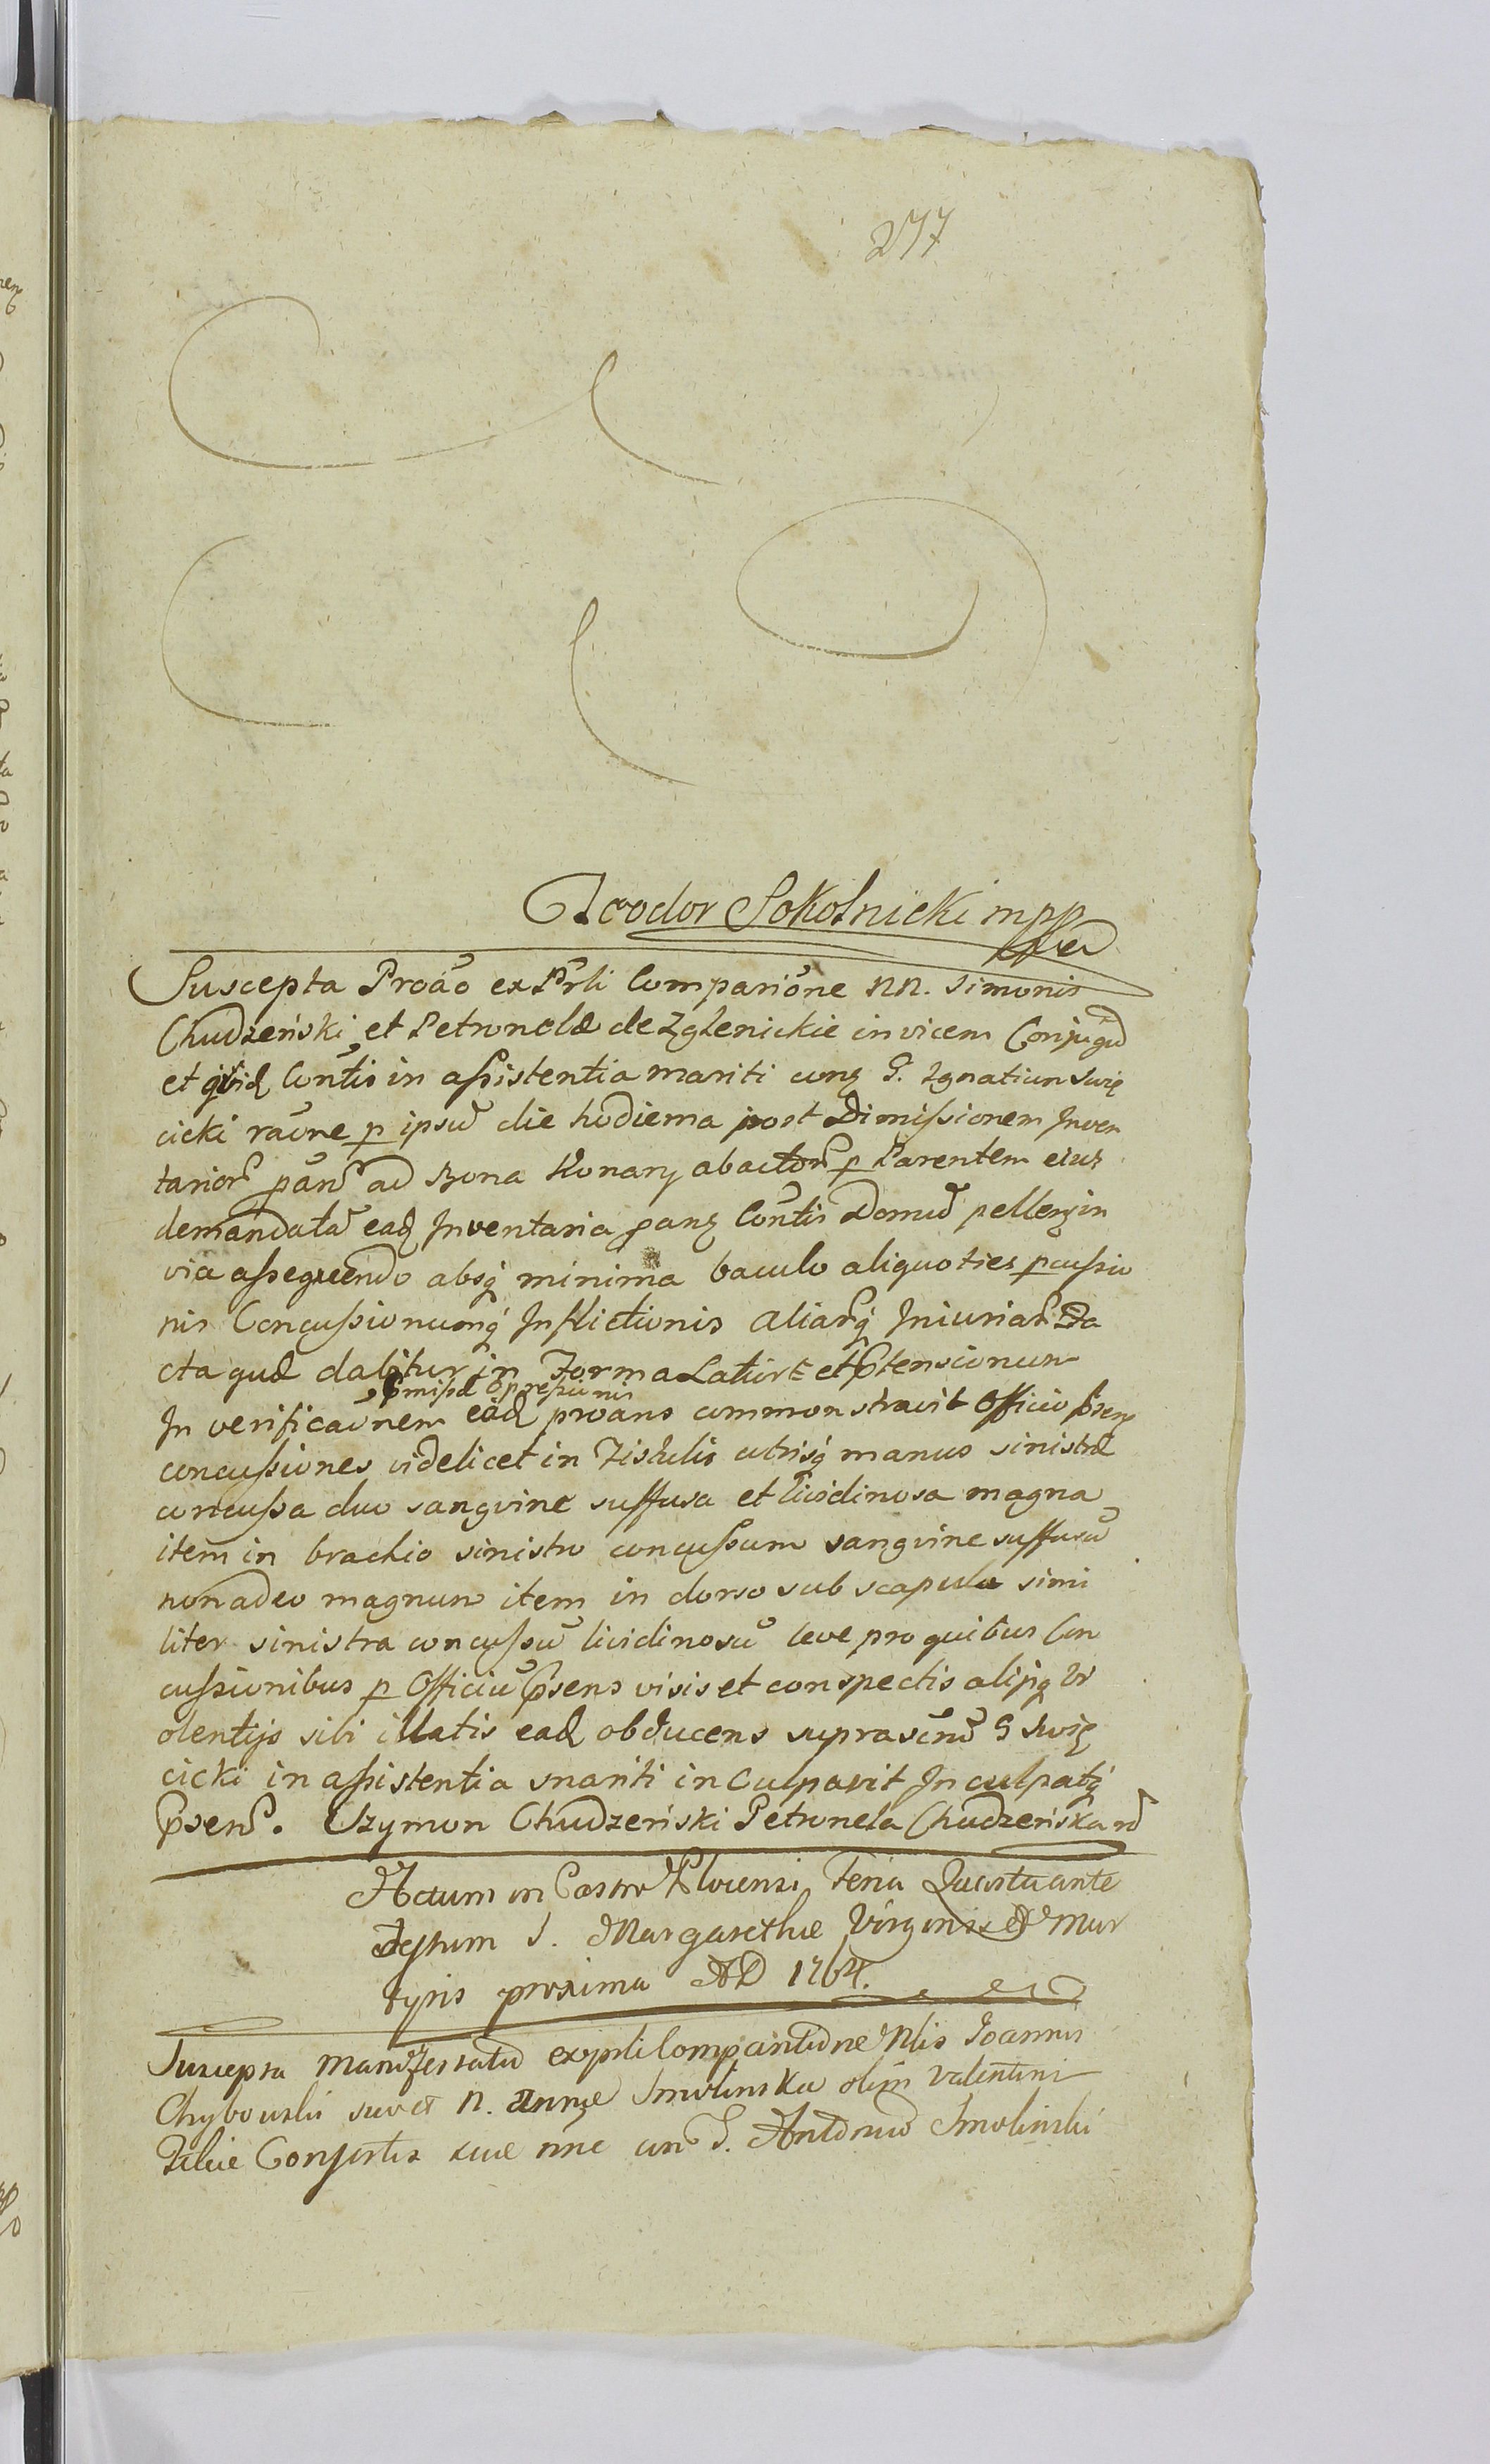 277
Teodor Sokolnicki mpp
Suscepta Proāo ex Prli Compariōne NN. Simonis
Chudzeński et Petronelæ de Zglenickie invicem Conjugū
et qvid Contis in assistentia mariti conq G. Ignatium Swię
cicki raōne p ipsū die hodierna post Dimissionem Inven
tarior ad Bona Konary abactor p Parentem eius
demandatā eaq Inventaria Contis Domū pellenq in
via assequendo absq minima baculo aliquoties pcussio
nis Concussionumq Inflictionis aliarq Iniuriar Da
cta quæ dabitur in Forma Lative et Ptensionum
præmissæ Opressionis
In verificaōnem eaq proans commonstravit Officio psenq
concussiones videlicet in Fistulis utrisq manus sinistræ
concussa duo sangvine suffusa et lividinosa magna
item in brachio sinistro concussum sangvine suffusū
non adeo magnum item in dorso sub scapula simi
liter sinistra concussū lividinosū leve pro quibus Con
cussionibus p Officiū Psens visis et conspectis alijsq Vi
olentijs sibi illatis eaq obducens suprascrū G Swię
cicki in assistentia mariti inculpavit Inculpatq
Psenr. Szymon Chudzeński Petronela Chudzeńska
Actum in Castro Plocensi Feria Quarta ante
Festum S. Margarethæ Virginis et Mar
tyris proxima AD 1764.
Suscepta Manifestatio ex prli Comparitione Nlis Joannis
Chybouski suo et N. Annæ Smolinska olim Valentini
Filiæ Consortis suæ nne con G. Antonio Smolinski